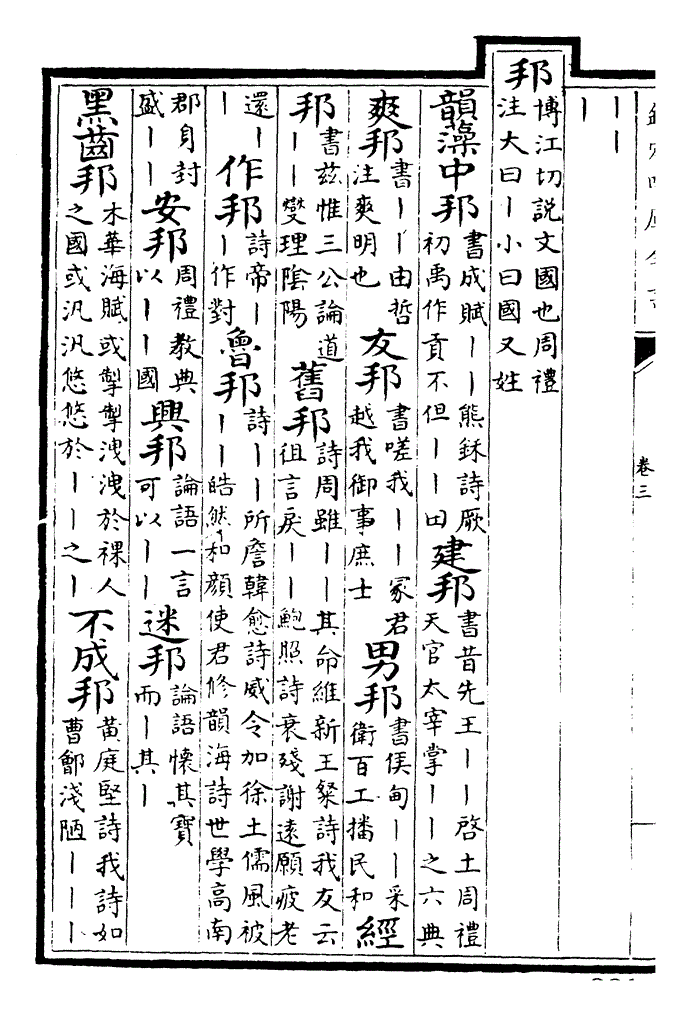 卷三
丨丨
丨
邦 博江切說文國也周禮注大曰丨小曰國又姓
韻藻中邦 書成賦丨丨熊鉌詩厥初禹作貢不但丨丨田 建邦 書昔先王丨丨啓土周禮天官太宰掌丨丨之六典
爽邦 書丨丨由哲注爽明也 友邦 書嗟我丨丨冢君越我御事庶士 男邦 書侯甸丨丨采衛百工播民和 經
邦 書茲惟三公論道丨丨燮理隂陽 舊邦 詩周雖丨丨其命維新王粲詩我友云徂言戾丨丨鮑照詩衰殘謝遠願疲老
還丨丨 作邦 詩帝丨丨作對 魯邦 詩丨丨所詹韓愈詩威令加徐土儒風被丨丨皓然和顔使君修韻海詩世學高南
郡身封盛丨丨 安邦 周禮教典以丨丨國 興邦 論語一言可以丨丨 迷邦 論語懷其寳而丨其丨
黑齒邦 木華海賦或掣掣洩洩於裸人之國或汎汎悠悠於丨丨之丨 不成邦 黃庭堅詩我詩如曹鄶淺陋丨丨丨